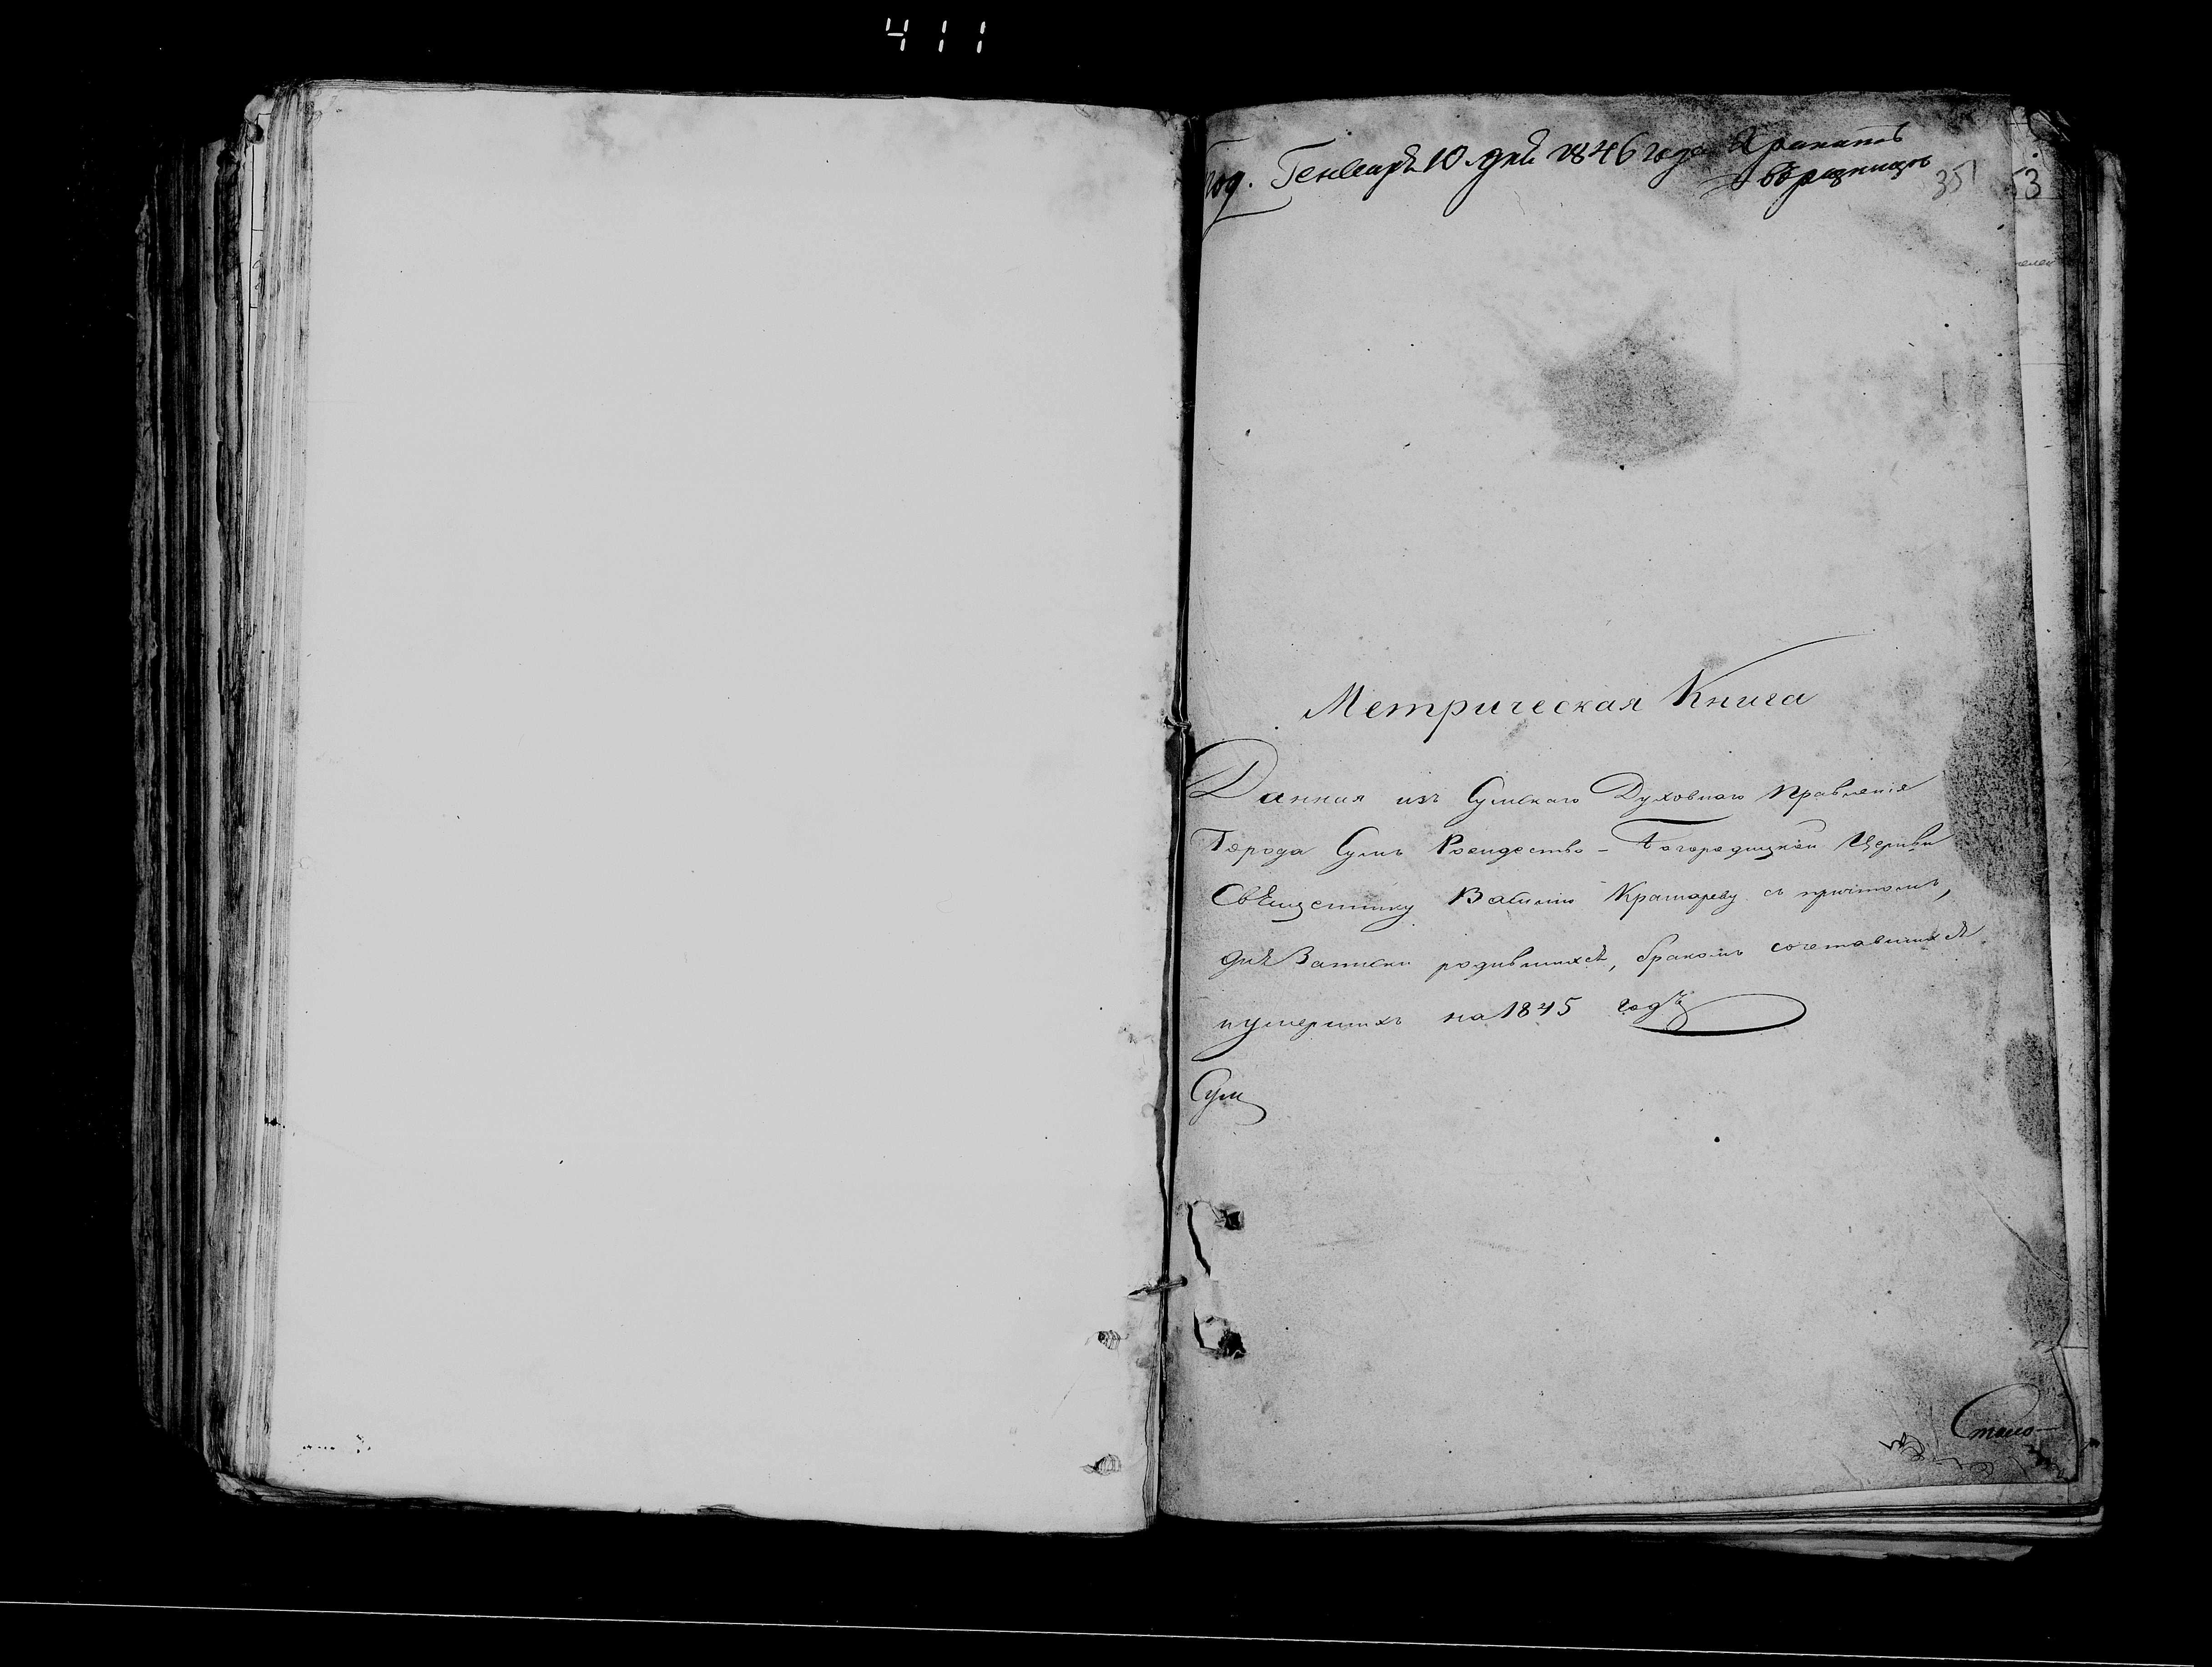 411
Под. Генваря 10 дня 1846 года Хранить
в ризнице
351
53
Метрическая Книга
Данная изъ Сумскаго Духовнаго Правленія
Города Сумъ Рождество-Богородицкой Церкви
Священнику Василію Крамареву съ причтомъ,
для Записки родившихся, бракомъ сочетавшихся
и умершихъ на 1845 годъ
Сум